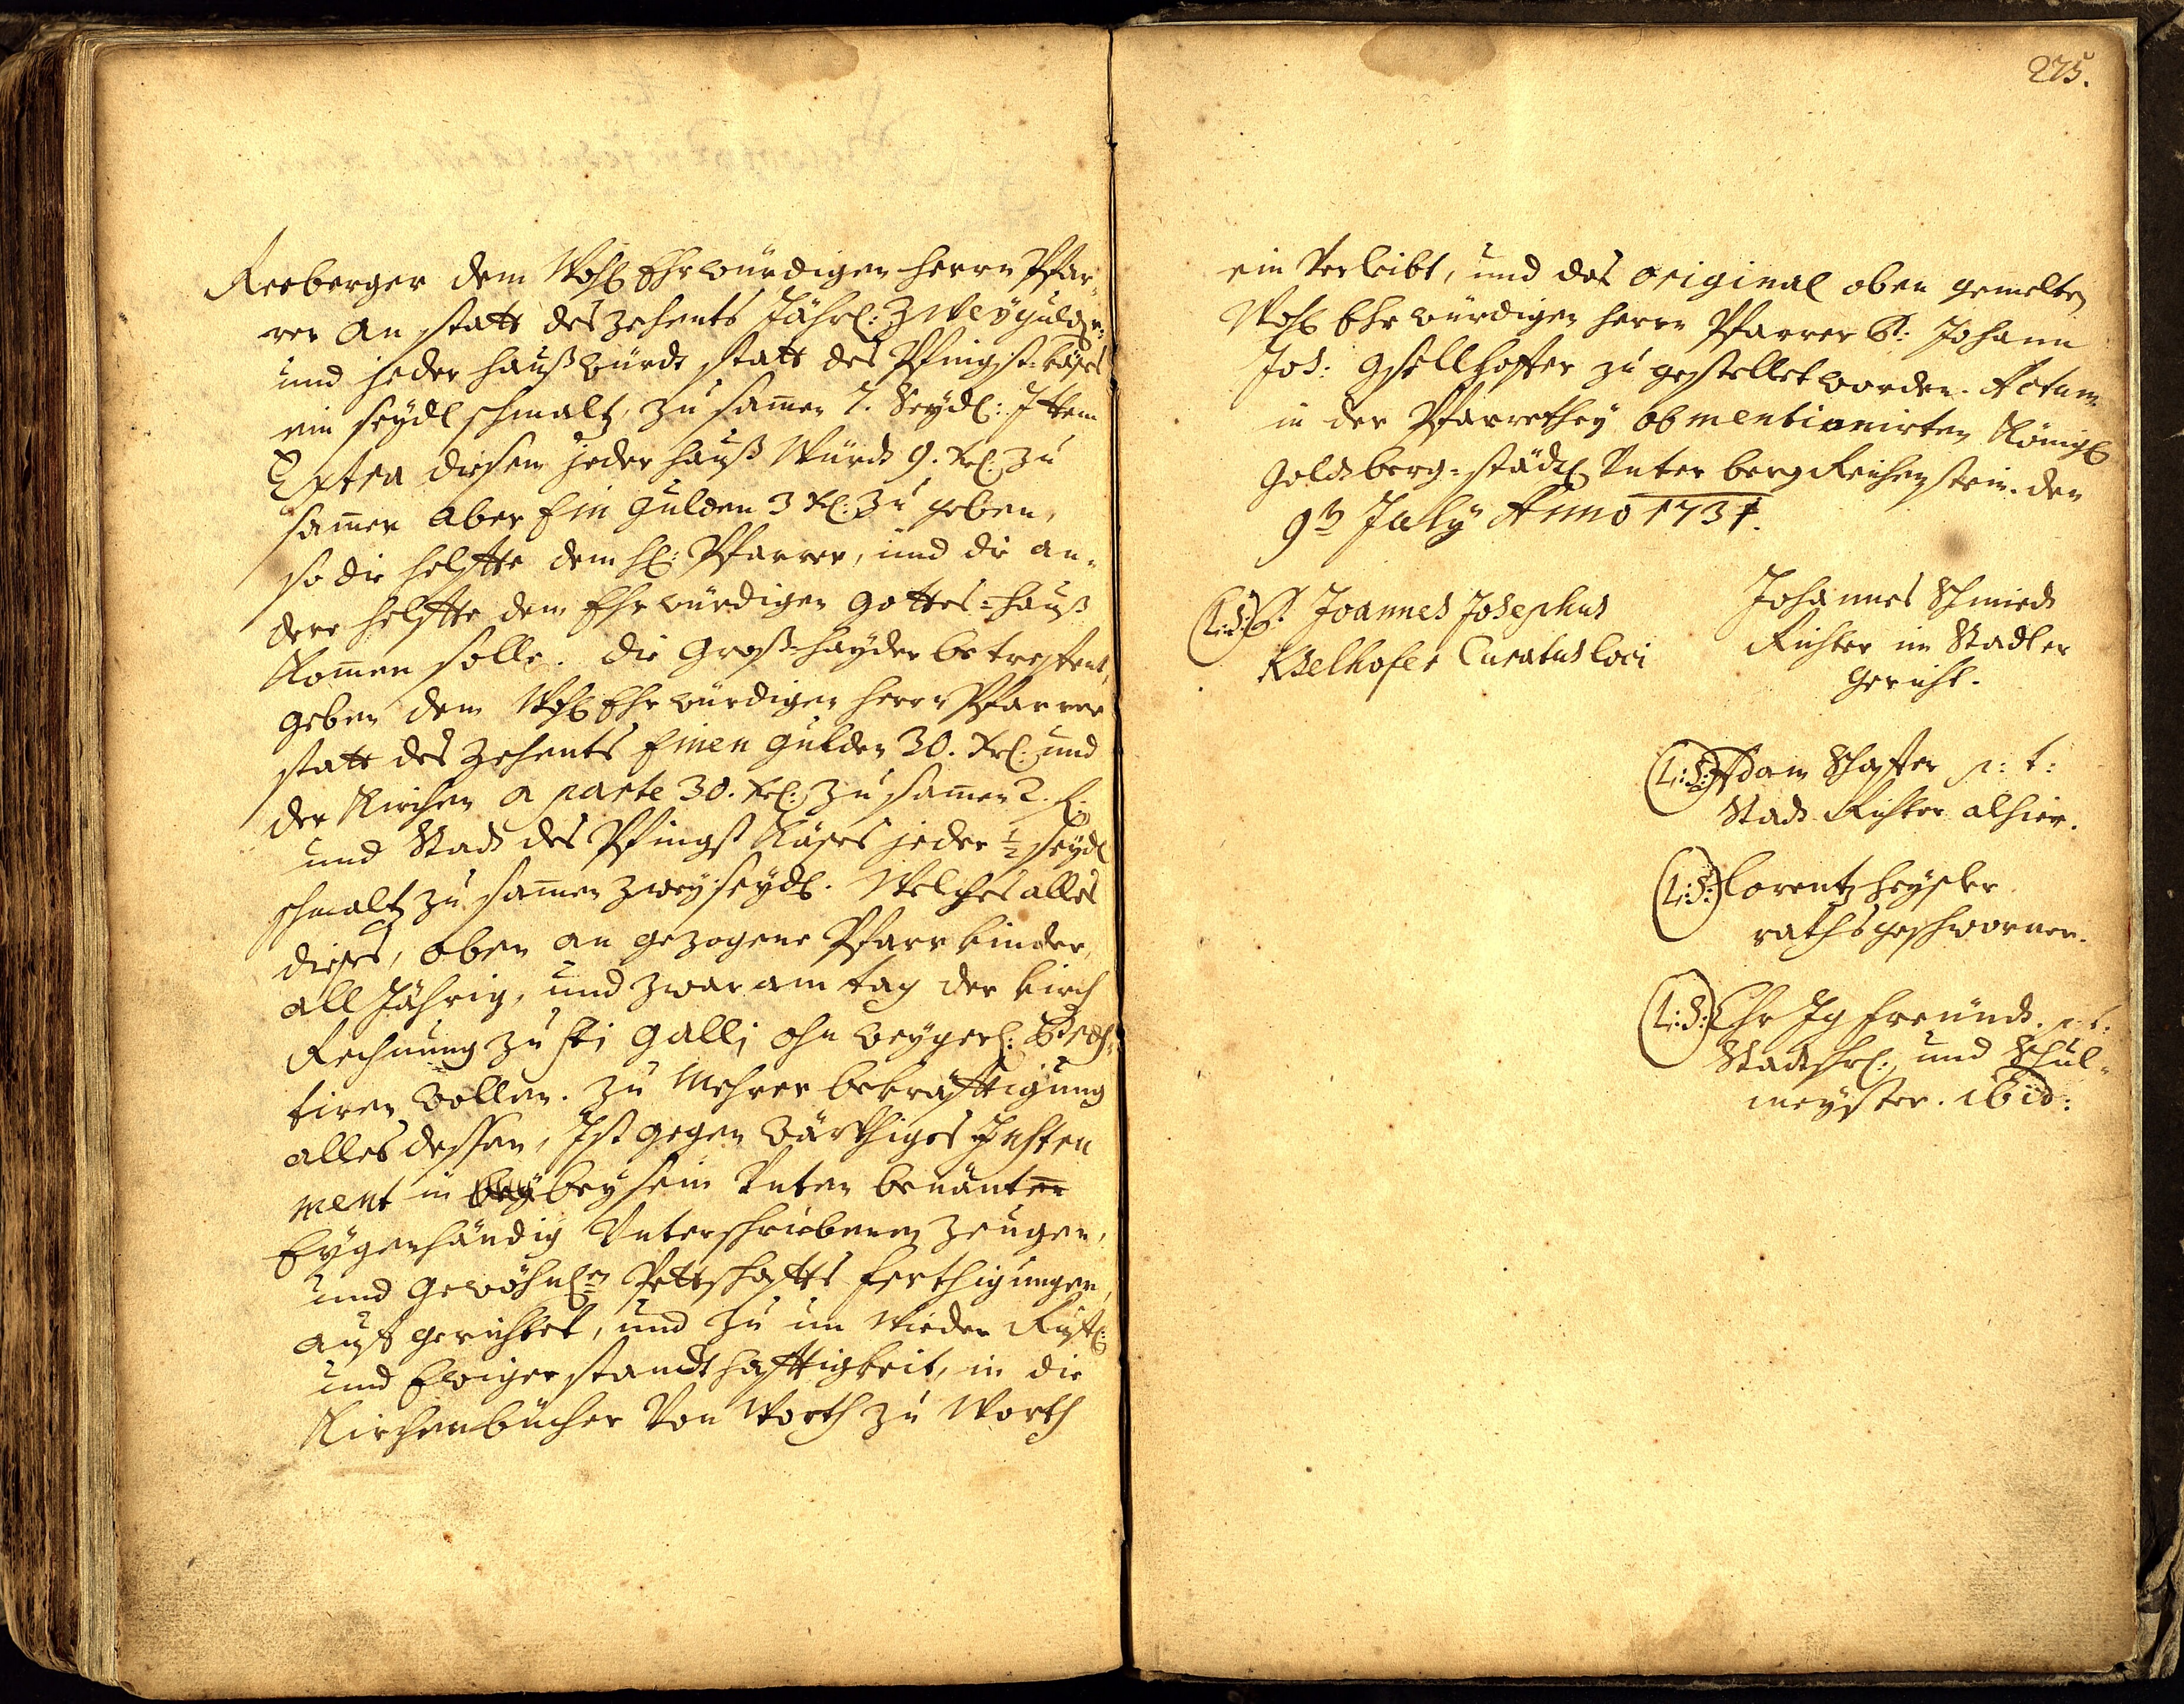 Reeberger dem Wohl Ehrwürdigen Herrn Pfar-
rer an statt des Zehents Jährl: Zwey gulden:
und jeder haußwürdt statt des Pfingst-käses
ein seydl schmaltz, zu samen 7. Seydl: Ittem
Extra diesem jeder hauß Würdt 9. krl: zu
samen aber Ein Gulden 3 kl: zu geben,
so die helffte dem hl: Pfarrer, und die an-
dere helffte dem Ehrwürdigen Gottes-hauß
komen solle. die Groß-hayder betreffent,
geben dem Wohl Ehrwürdigen Herrn Pfarrer
statt des Zehents Einen Gulden 30. krl: und
der Kirchen a parte 30. krl: zu samen 2. fl:
und Stadt des Pfingst Käses jeder ½ seydl
schmaltz zu samen zwey seydl. Welches alles
dieses, oben an gezogene Pfarr kinder,
all Jährig, und zwar am tag der kirch
Rechnung zu sti Galli ohn weygerl:
tiren wollen. zu Mehrer bekräfftigung
alles dessen, Ist gegen wärthiges Instru
ment in beysein Unten benanten
Eygenhändig Unterschriebenen Zeugen,
und Gewöhnln Pettschaffts ferthigungen,
auff gerichtet, und zu un wieder Rufl:
und Ewiger standthafftigkeit, in die
Kirchenbücher Von Worth zu Worth
275.
ein Verleibt, und das original oben gemelten
Wohl Ehrwürdigen Herrn Pfarrer P: Johann
Jos: Gsellhoffer zu gestellet worden. Actum
in der Pfarrethey obmentionirten Königl
Goldtberg-städtl Unter berg Reichenstein. den
9tn July Anno 1731.
(L:S:) P. Joannes Josephus
Kselhofer Curatus loci
Johannes Schmiedt
Richter im Stadler
Gericht.
(L:S:) Adam Schaffer p: t:
Stadt Richter alhier.
(L:S:) Lorentz Heysler
raths geschworner.
(L:S:) Chr Jg Freundt. p: t:
Stadtschrl: und Schul-
meyster. ibid: